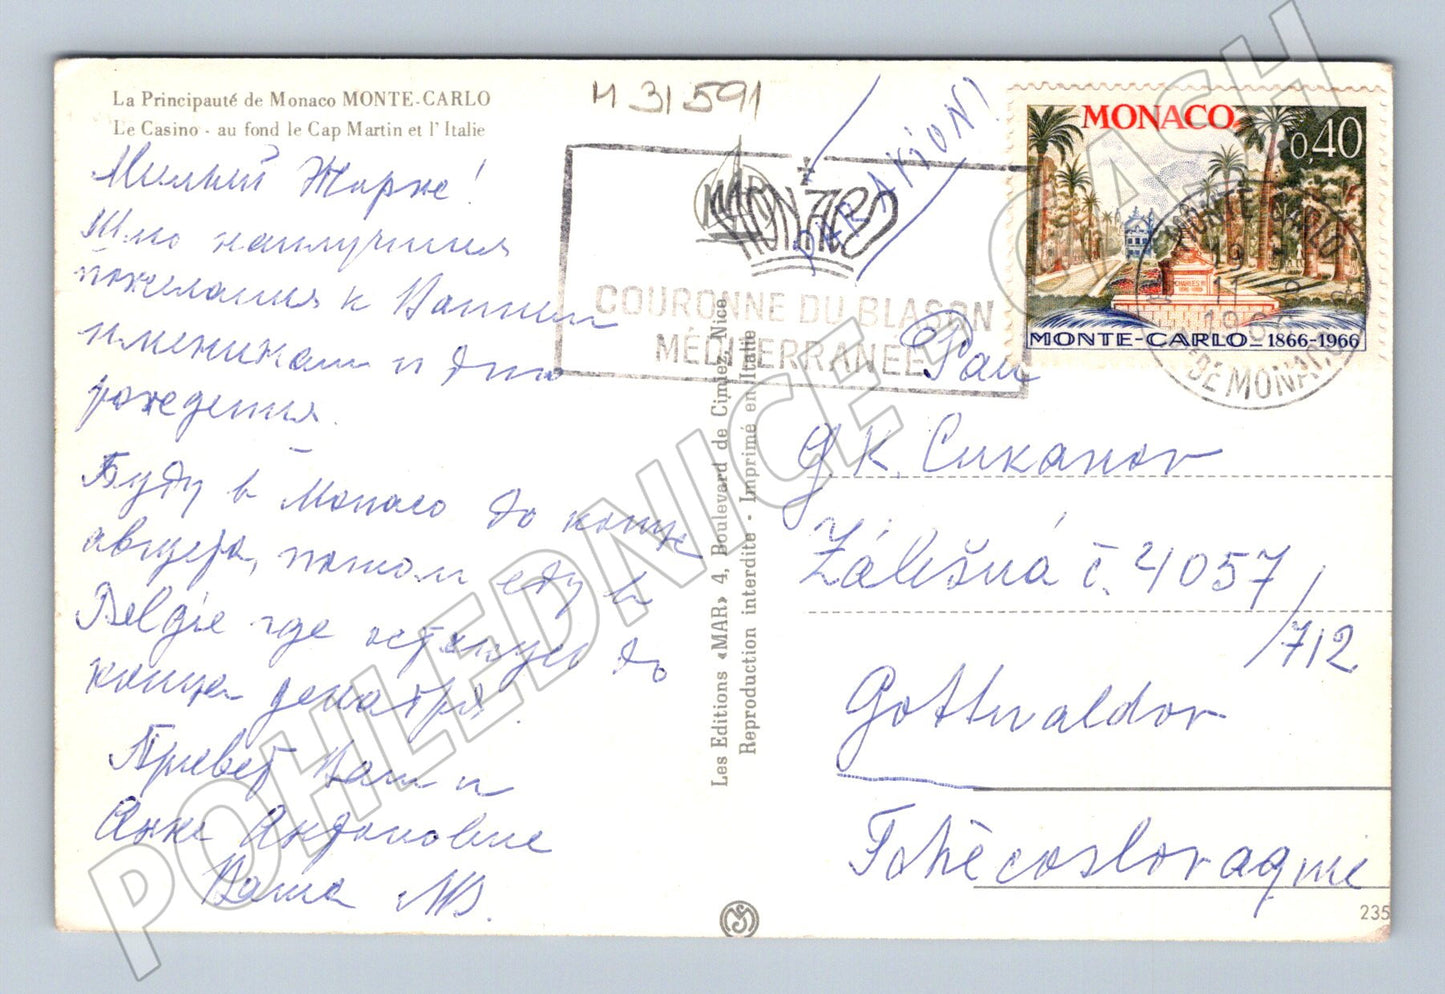 La Principauté de Monaco MONTE-CARLO
Le Casino - au fond le Cap Martin et l'Italie
И 31591
PAR AVION!
Милый Жорже!
Шлю наилучшия
пожелания к Вашим
именинам и дню
рождения.
Буду в Monaco до конца
августа, потом еду в
Belgie где останусь до
конца декабря.
Привет Вам и
Анне Антоновне
Ваша
MONACO
COURONNE DU BLASON
MÉDITERRANÉE
MONACO
0,40
CHARLES III
MONTE-CARLO 1866-1966
MONTE-CARLO
19 H
11
196
PTÉ DE MONACO
Pan
J. K. Cukanov
Zálešná č. 4057/
/712
Gottwaldov
Tchècoslovaquie
Les Editions «MAR» 4, Boulevard de Cimiez, Nice
Reproduction interdite - Imprimé en Italie
235
POHLEDNICE CASH